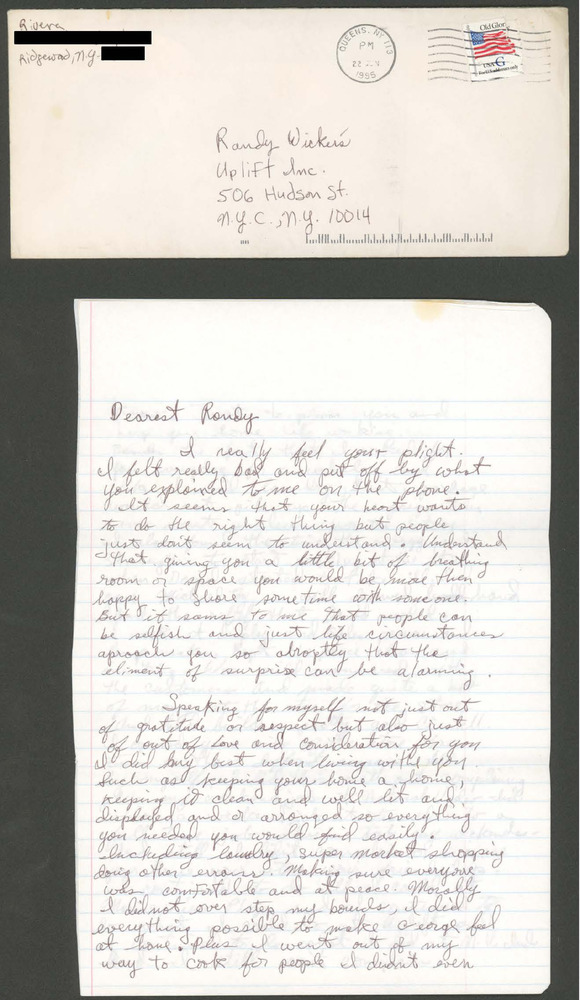 Rivera
Ridgewood, N.Y.
QUEENS, NY 113
PM
22
1995
Old Glory
USA G
For U.S. addresses only
Randy Wickers
Uplift Inc.
506 Hudson St.
N.Y.C., N.Y. 10014
Dearest Randy
I really feel your plight.
I felt really bad and put off by what
you explained to me on the phone.
It seems that your heart wants
to do the right thing but people
just don't seem to understand. Understand
that giving you a little bit of breathing
room or space you would be more then
happy to share some time with someone.
But it seams to me that people can
be selfish and just life circumstances
aproach you so abroptly that the
eliment of surprise can be alarming.
Speaking for myself not just out
of gratitude or respect but also just
of out of love and consideration for you
I did my best when living withe you.
Such as keeping your home a home,
keeping it clean and well lit and
displaded, and or arranged so everything
you needed you would find easily.
Including laundry, super market shopping
doing other errons. Making sure everyone
was comfortable and at peace. Morally
I did not over step my bounds, I did
everything possible to make George feel
at home. Plus I went out of my
way to cook for people I didn't even